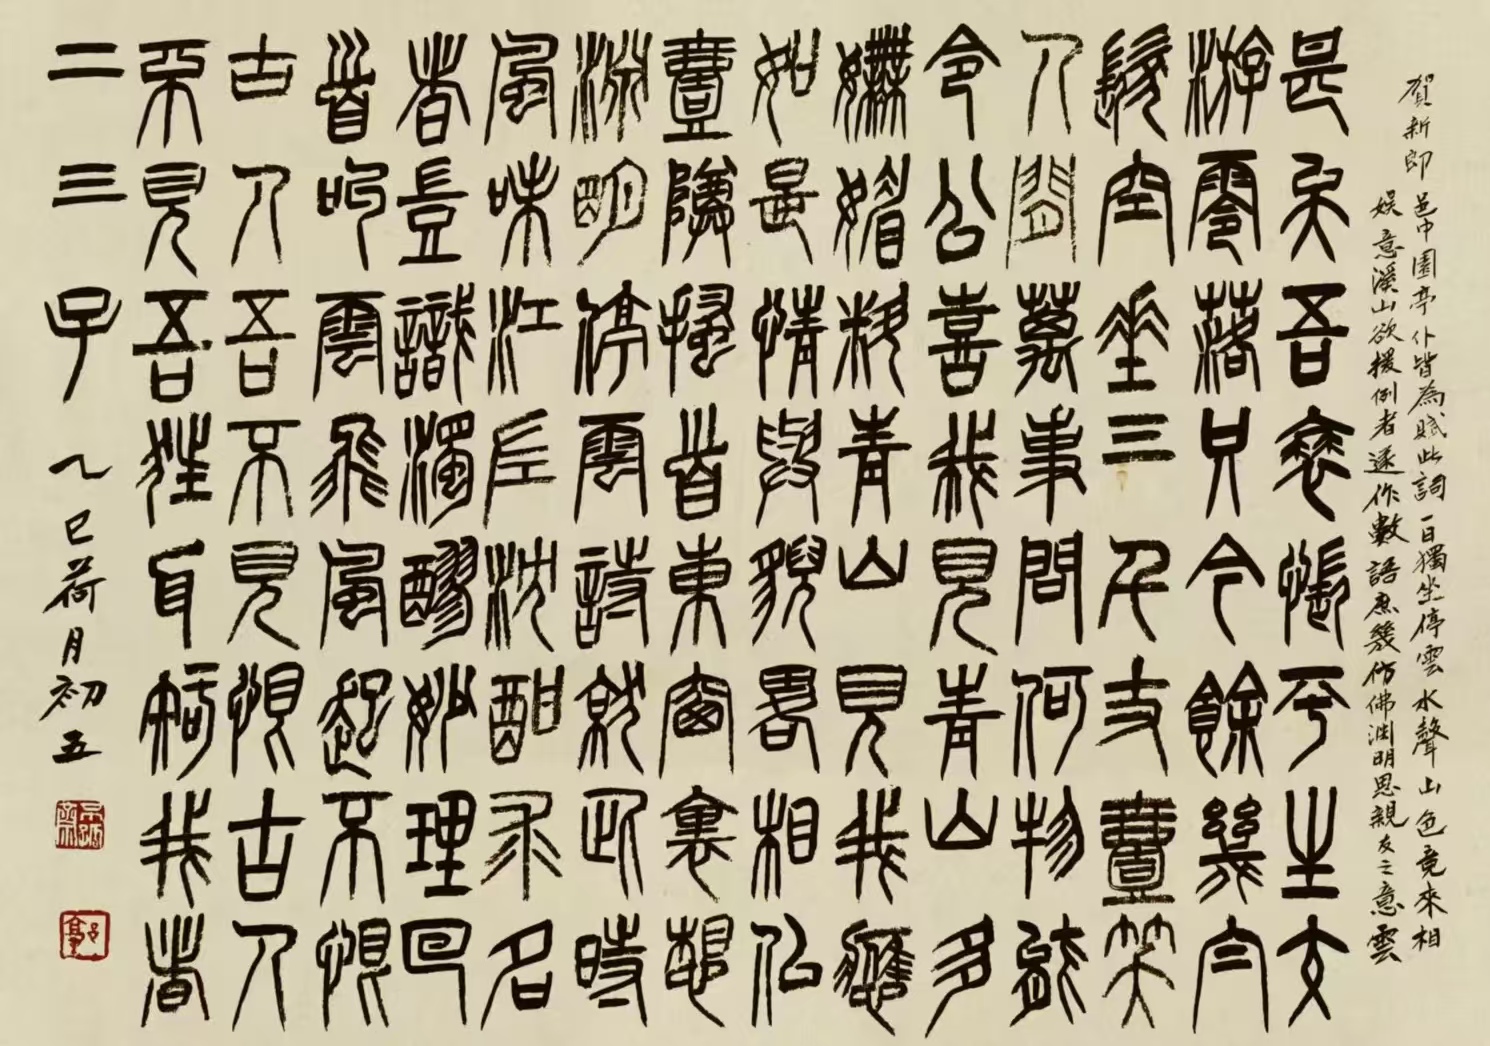 賀新郎 邑中園亭仆皆為賦此詞一日獨坐停雲水聲山色竟來相
娛意溪山欲援例者遂作數語庶幾仿佛淵明思親友之意雲
甚矣吾衰悵平生交
游零落只今餘幾白
髮空垂三千丈壹笑
人間萬事問何物能
令公喜我見青山多
嫵媚料青山見我應
如是情與貌略相似
壹尊搔首東窗裏想
淵明停雲詩就此時
風味江左沈酣求名
者豈識濁醪妙理回
首叫雲飛風起不恨
古人吾不見恨古人
不見吾狂耳知我者
二三子 乙巳荷月初五